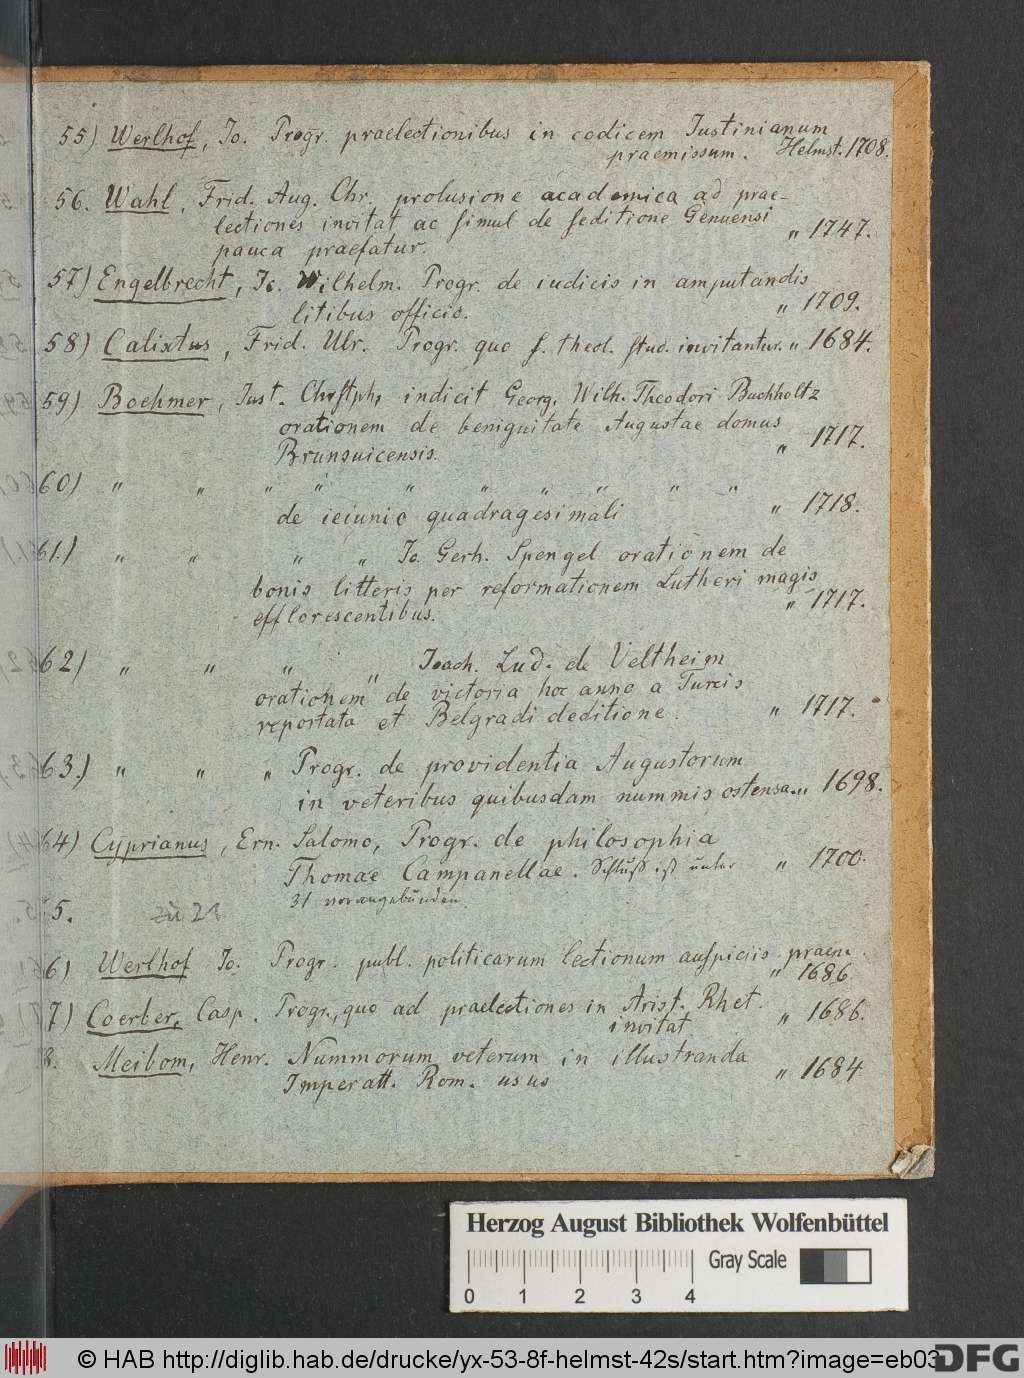 55) Werlhof, Io. Progr. praelectionibus in codicem Iustinianum
praemissum. Helmst. 1708.
56. Wahl, Frid. Aug. Chr. prolusione academica ad prae-
lectiones invitat ac simul de seditione Genuensi
pauca praefatur. " 1747.
57) Engelbrecht, Io. Wilhelm. Progr. de iudicis in amputandis
litibus officio. " 1709.
58) Calixtus, Frid. Ulr. Progr. quo s. theol. stud. invitantur. " 1684.
59) Boehmer, Iust. Chrstph, indicit Georg. Wilh. Theodori Buchholtz
orationem de benignitate Augustae domus
Brunsuicensis. " 1717.
60) " " " " " " " " " "
de ieiunio quadragesimali " 1718.
61.) " " " " Io. Gerh. Spengel orationem de
bonis litteris per reformationem Lutheri magis
efflorescentibus. " 1717.
62) " " " " Ioach. Lud. de Veltheim
orationem de victoria hoc anno a Turcis
reportata et Belgradi deditione. " 1717.
63.) " " " Progr. de providentia Augustorum
in veteribus quibusdam nummis ostensa. " 1698.
64) Cyprianus, Ern. Salomo, Progr. de philosophia
Thomae Campanellae. Schluß ist unter " 1700.
31 vorangebunden.
5. zu 23
6) Werlhof Io. Progr. publ. politicarum lectionum auspiciis praem.
" 1686.
7) Coerber, Casp. Progr., quo ad praelectiones in Arist. Rhet.
invitat " 1686.
8. Meibom, Henr. Nummorum veterum in illustranda
Imperatt. Rom. usus " 1684
Herzog August Bibliothek Wolfenbüttel
Gray Scale
0 1 2 3 4
© HAB http://diglib.hab.de/drucke/yx-53-8f-helmst-42s/start.htm?image=eb03
DFG